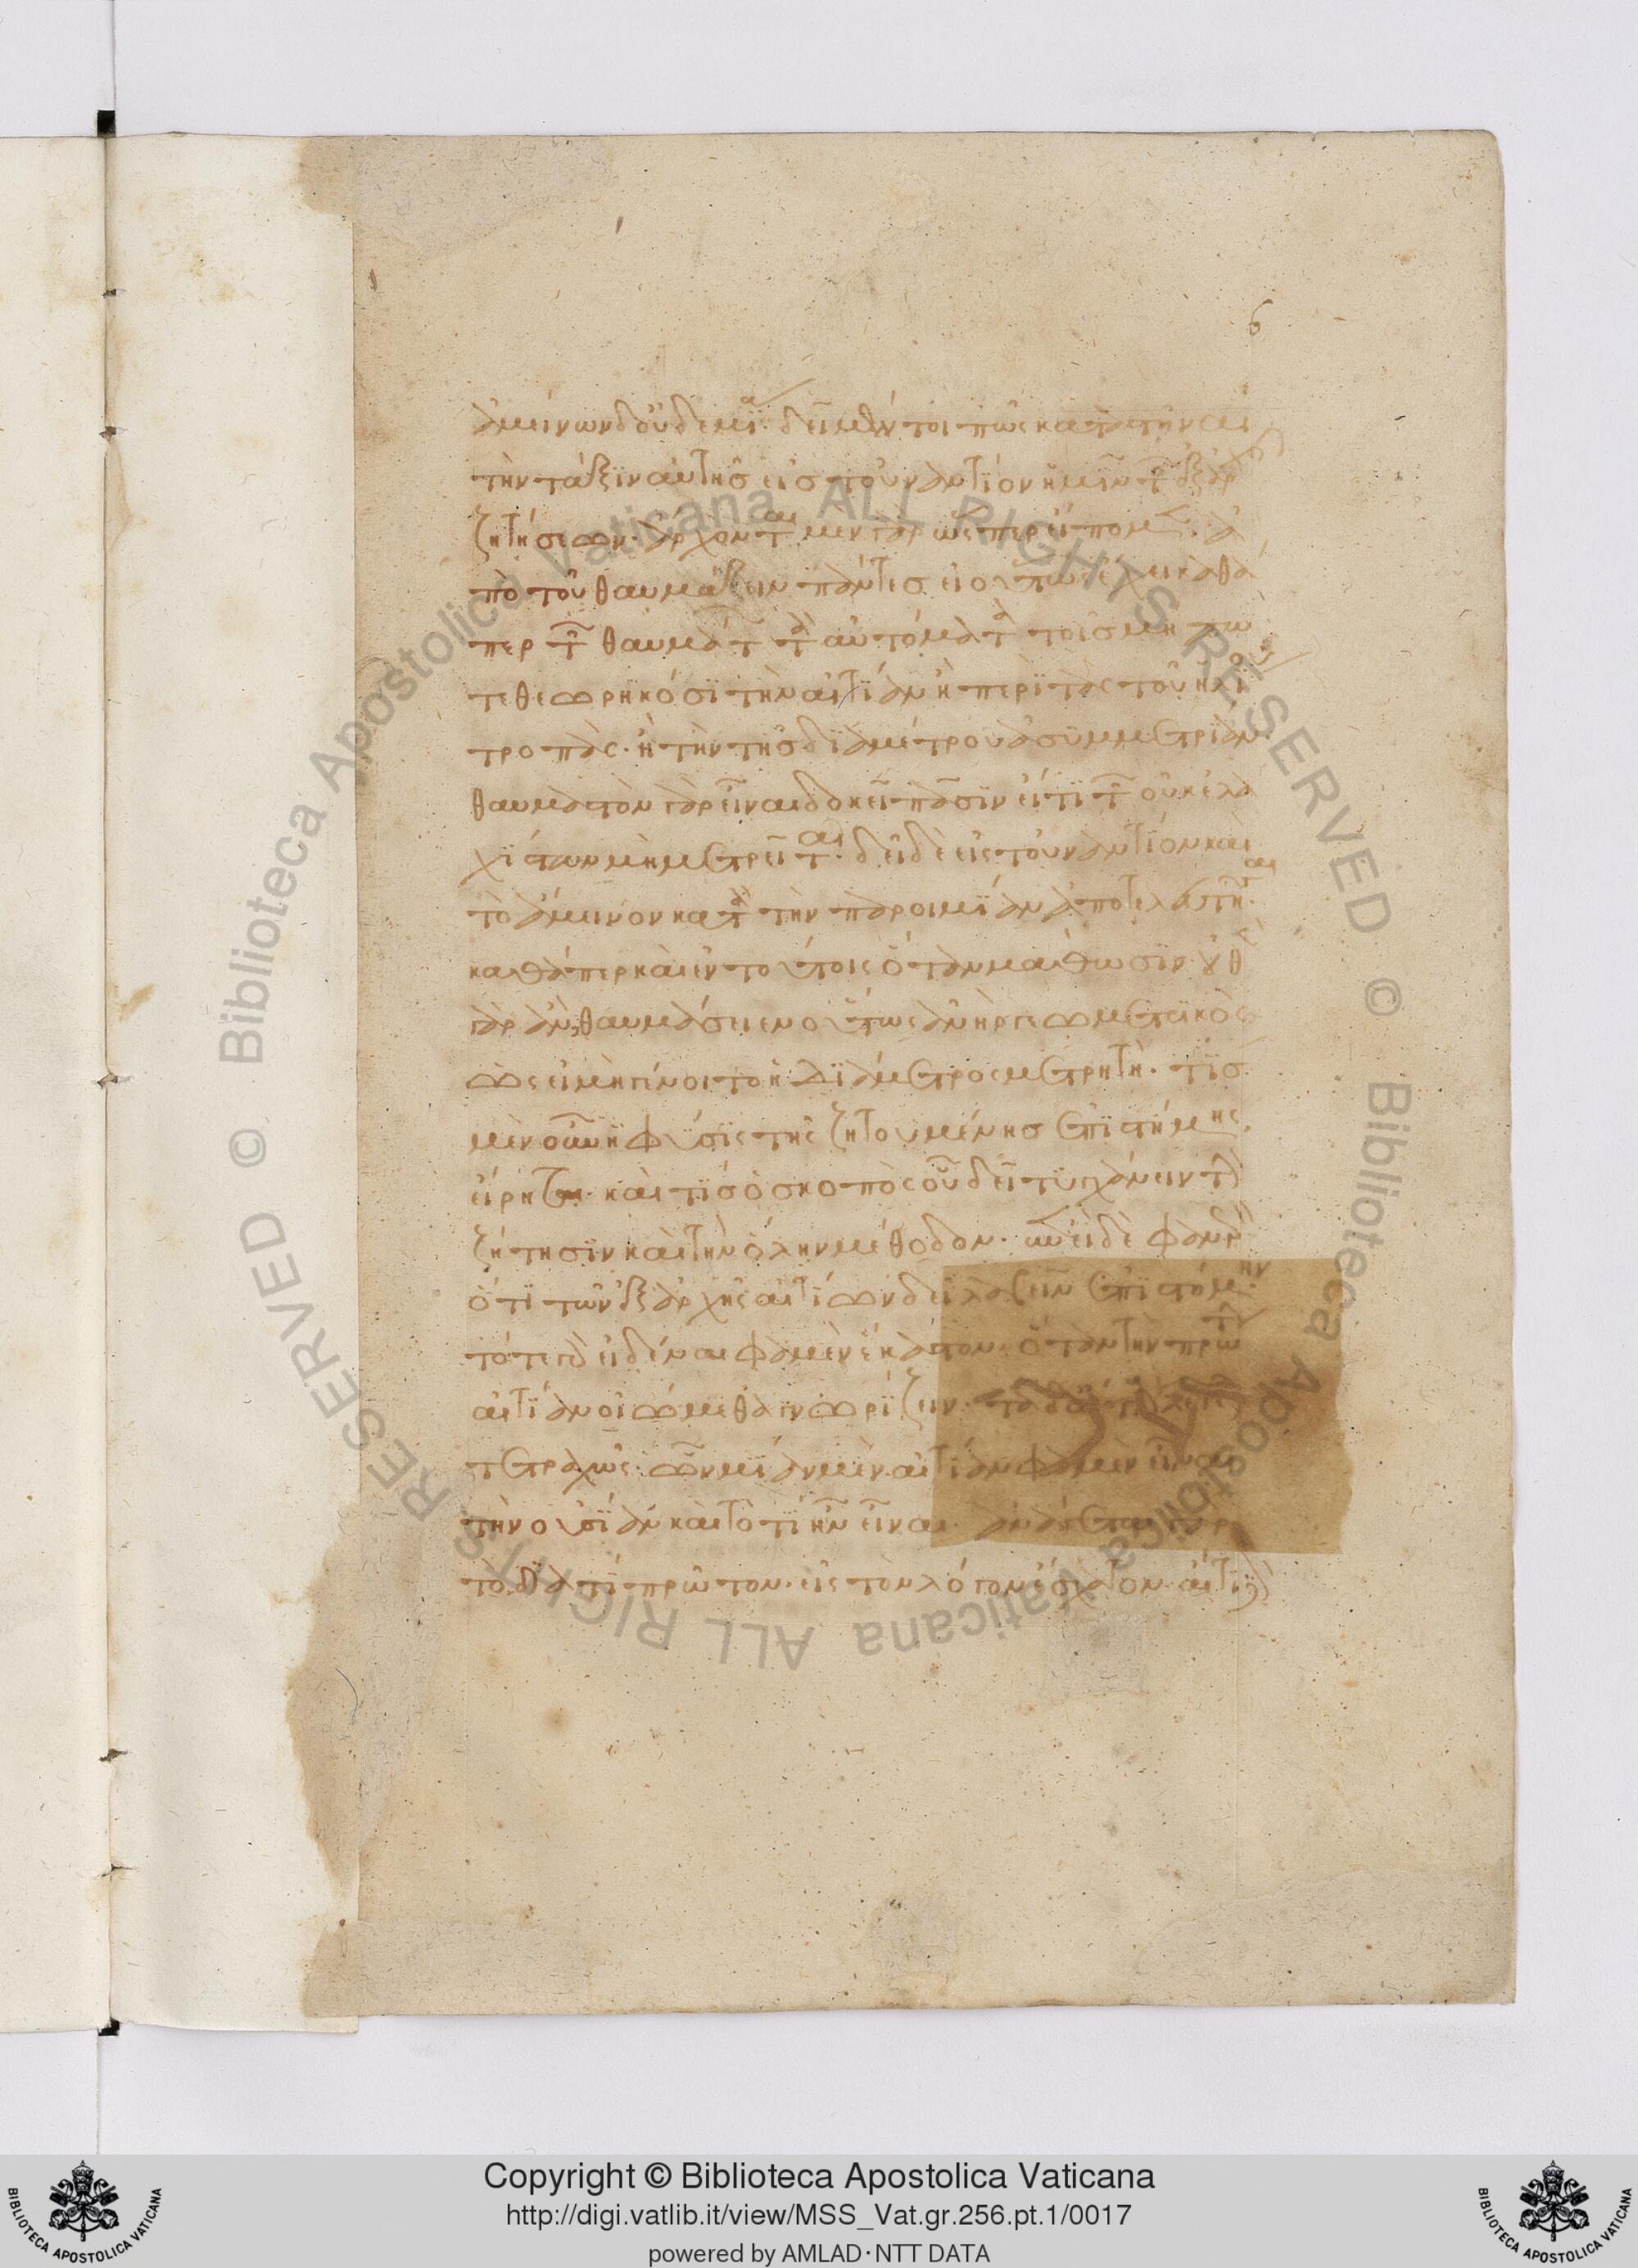 6
ἀμείνων δ' οὐδεμία. δεῖ μέντοι πως καταστῆναι
τὴν τάξιν αὐτῆς εἰς τοὐναντίον ἡμῖν τῶν ἐξ ἀρχῆς
ζητήσεων. ἄρχονται μὲν γὰρ ὥσπερ εἴπομεν. ἀ
πὸ τοῦ θαυμάζειν πάντες εἰ οὕτως ἔχει καθά
περ τῶν θαυμάτων τὰ αὐτόματα τοῖς μήπω
τεθεωρηκόσι τὴν αἰτίαν ἢ περὶ τὰς τοῦ ἡλίου
τροπάς. ἢ τὴν τῆς διαμέτρου ἀσυμμετρίαν
θαυμαστὸν γὰρ εἶναι δοκεῖ πᾶσιν εἴ τι τῶν οὐκ ἐλα
χίστων μὴ μετρεῖται. δεῖ δὲ εἰς τοὐναντίον καὶ
τὸ ἄμεινον κατὰ τὴν παροιμίαν ἀποτελευτῆσαι.
καθάπερ καὶ ἐν τούτοις ὅταν μάθωσιν. οὐθὲν
γὰρ ἂν θαυμάσειεν οὕτως ἀνὴρ γεωμετρικὸς
ὡς εἰ μὴ γένοιτο ἡ διάμετρος μετρητή. τίς
μὲν οὖν ἡ φύσις τῆς ζητουμένης ἐπιστήμης.
εἴρηται. καὶ τίς ὁ σκοπὸς οὗ δεῖ τυγχάνειν τὴν
ζήτησιν καὶ τὴν ὅλην μέθοδον. ἐπεὶ δὲ φανερὸν
ὅτι τῶν ἐξ ἀρχῆς αἰτίων δεῖ λαβεῖν ἐπιστήμην.
τότε γὰρ εἰδέναι φαμὲν ἕκαστον. ὅταν τὴν πρώτην
αἰτίαν οἰώμεθα γνωρίζειν. τὰ δ' αἴτια λέγεται
τετραχῶς. ὧν μίαν μὲν αἰτίαν φαμὲν εἶναι
τὴν οὐσίαν καὶ τὸ τί ἦν εἶναι. ἀνάγεται γὰρ
τὸ διὰ τί πρῶτον. εἰς τὸν λόγον ἔσχατον. αἴτιον
Copyright © Biblioteca Apostolica Vaticana
http://digi.vatlib.it/view/MSS_Vat.gr.256.pt.1/0017
powered by AMLAD·NTT DATA
BIBLIOTECA APOSTOLICA VATICANA
BIBLIOTECA APOSTOLICA VATICANA
© Biblioteca Apostolico Vaticana ALL RIGHTS RESERVED
© Biblioteca Apostolica Vaticana ALL RIGHTS RESERVED